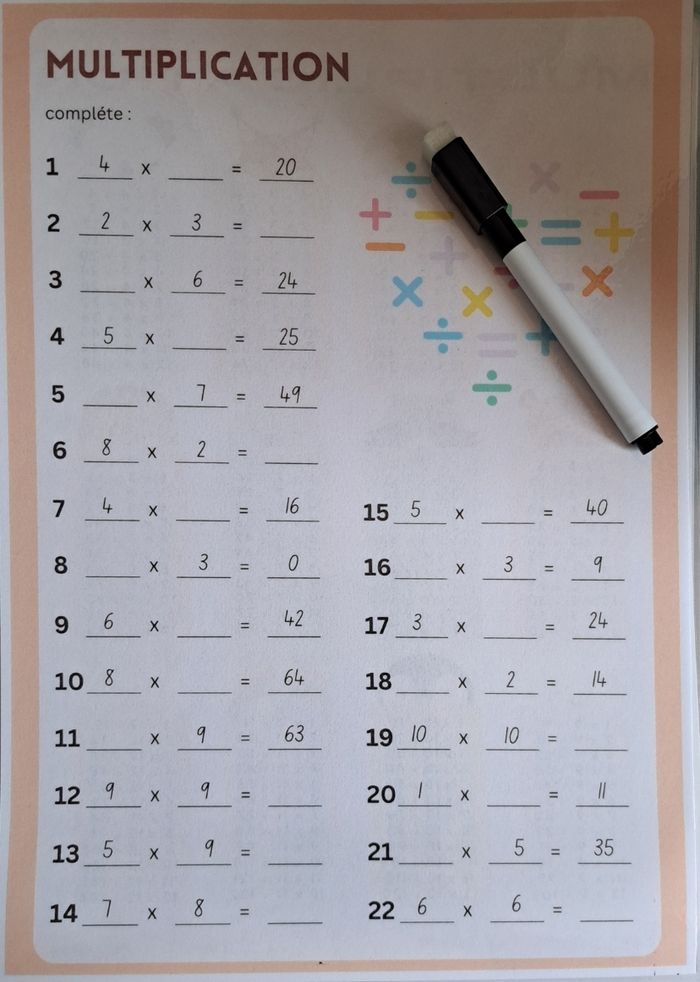 MULTIPLICATION
compléte :
1 4 x ____ = 20
2 2 x 3 = ____
3 ____ x 6 = 24
4 5 x ____ = 25
5 ____ x 7 = 49
6 8 x 2 = ____
7 4 x ____ = 16
8 ____ x 3 = 0
9 6 x ____ = 42
10 8 x ____ = 64
11 ____ x 9 = 63
12 9 x 9 = ____
13 5 x 9 = ____
14 7 x 8 = ____
15 5 x ____ = 40
16 ____ x 3 = 9
17 3 x ____ = 24
18 ____ x 2 = 14
19 10 x 10 = ____
20 1 x ____ = 11
21 ____ x 5 = 35
22 6 x 6 = ____